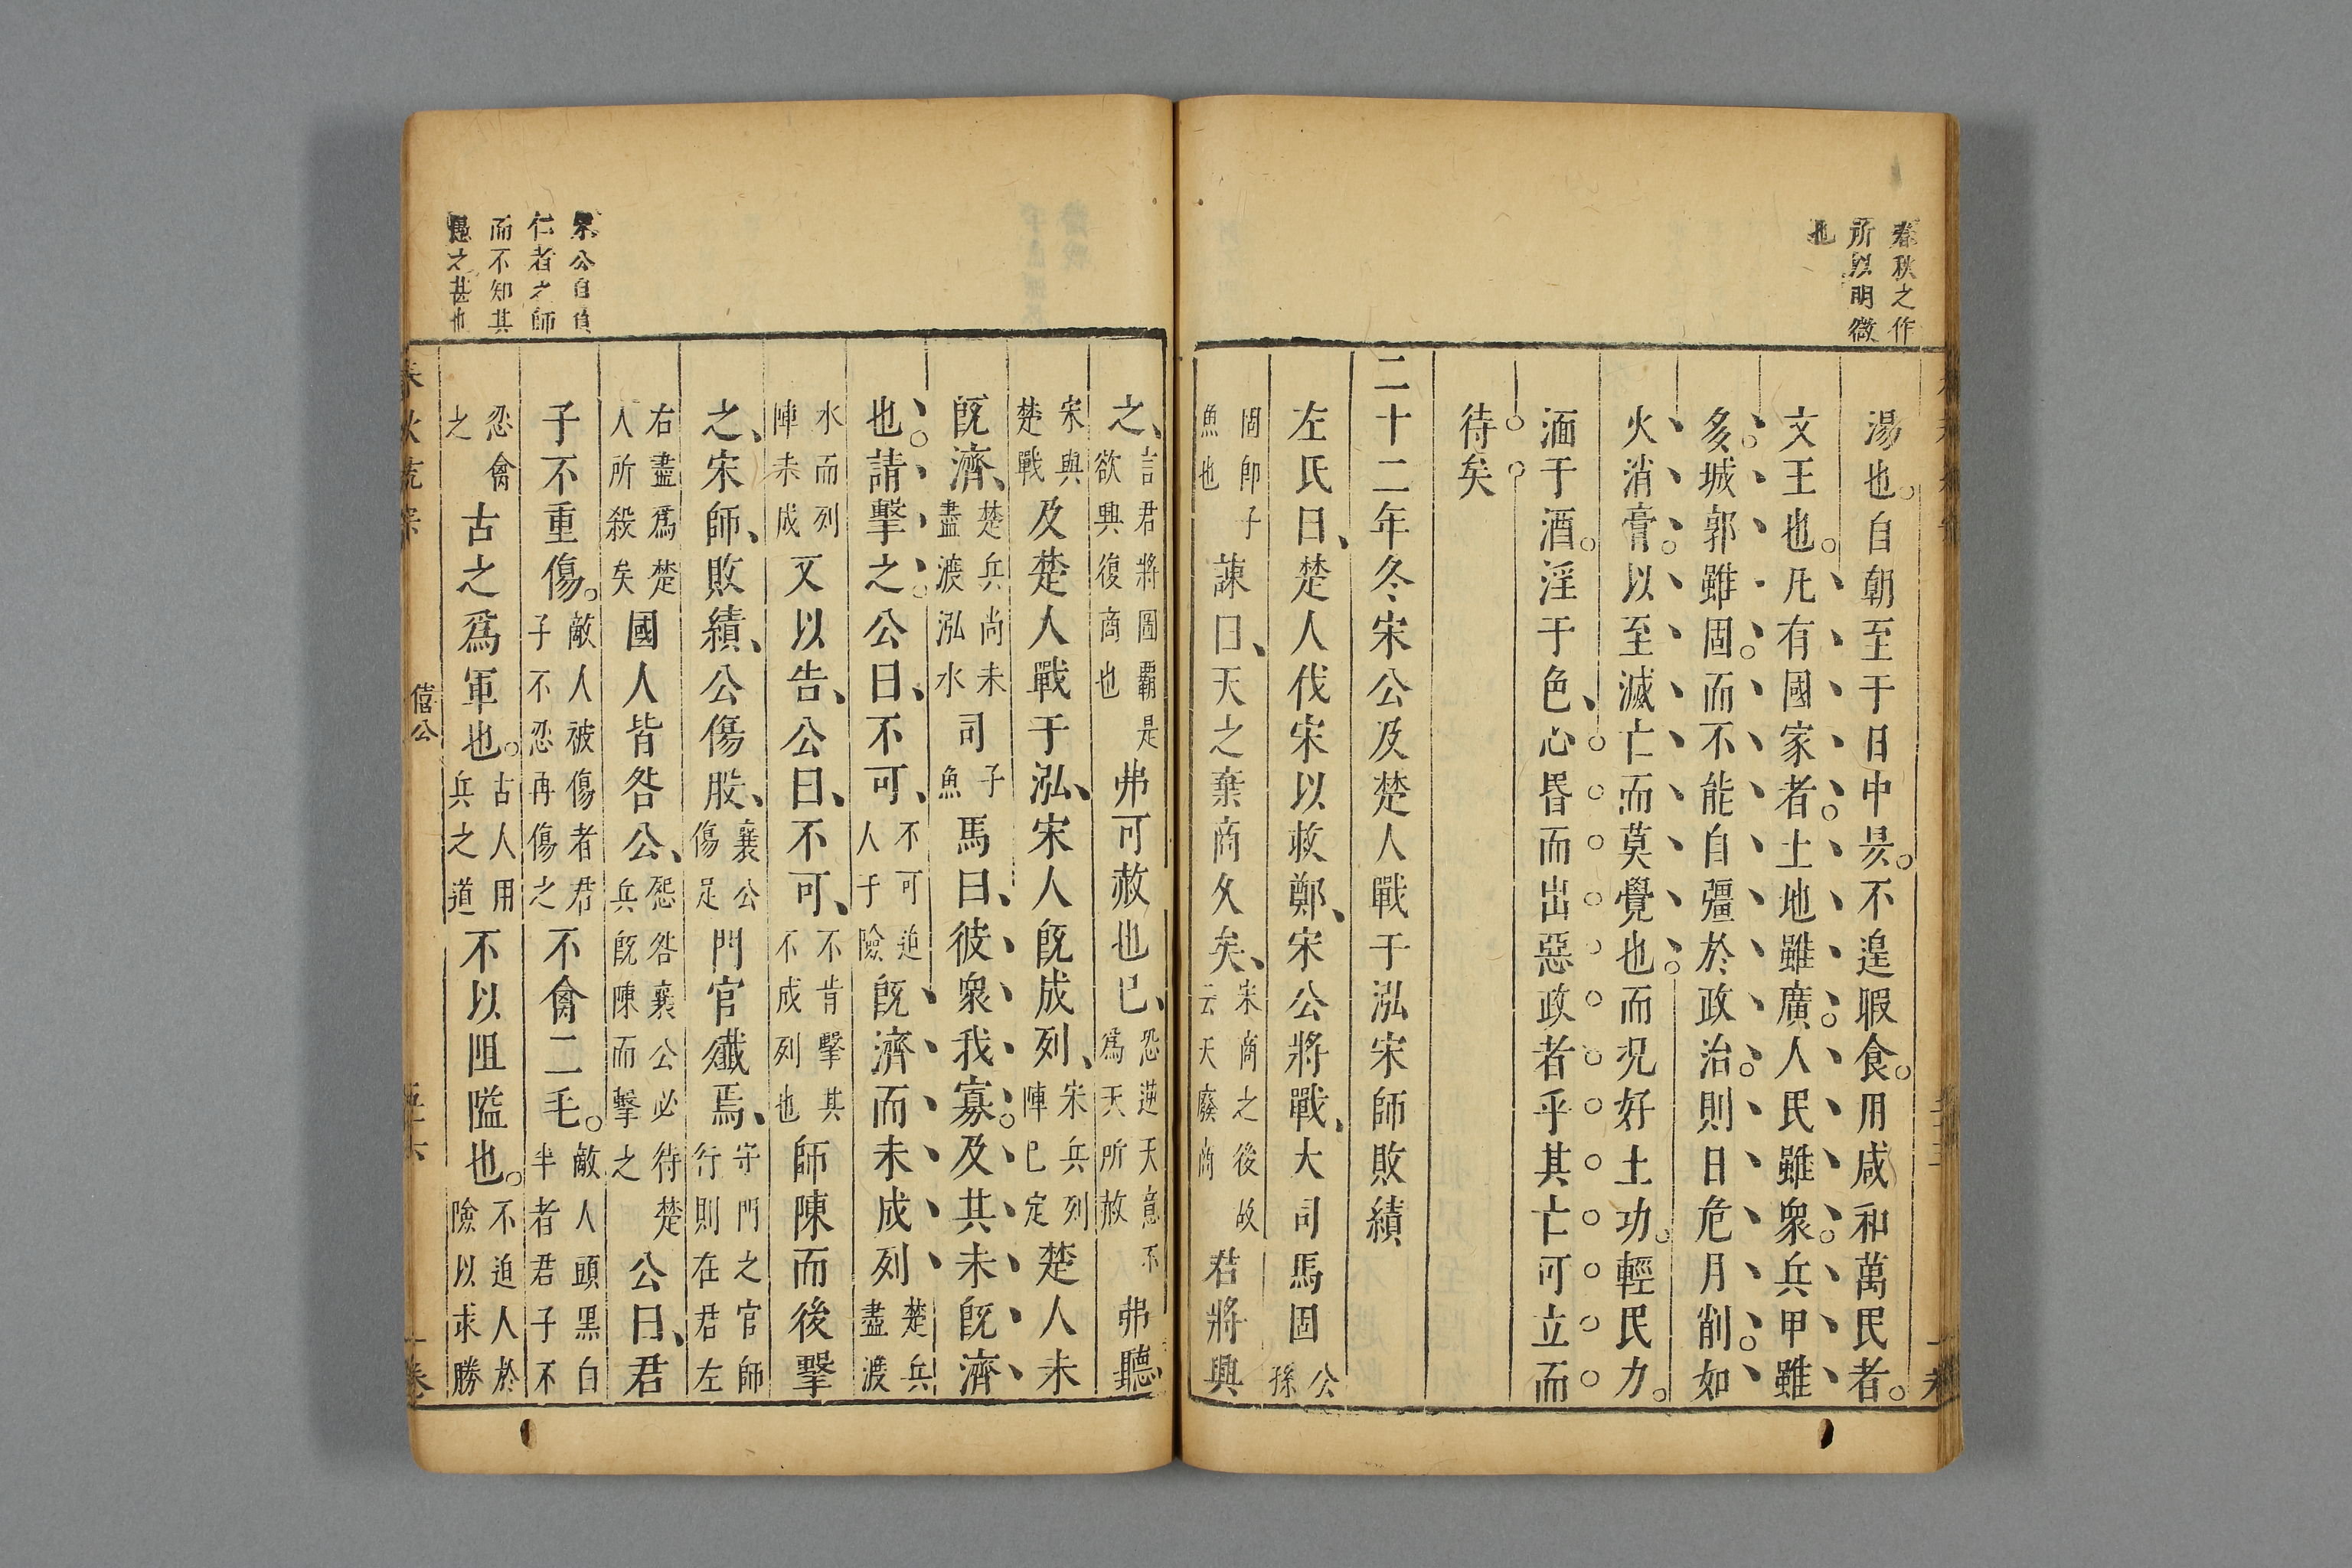 春秋之作
所以明微
也
湯也自朝至于日中昃不遑暇食用咸和萬民者
文王也凡有國家者土地雖廣人民雖衆兵甲雖
多城郭雖固而不能自彊於政治則日危月削如
火消膏以至滅亡而莫覺也而况好土功輕民力
湎于酒淫于色心昏而出惡政者乎其亡可立而
待矣
二十二年冬宋公及楚人戰于泓宋師敗績
左氏曰楚人伐宋以救鄭宋公將戰大司馬固公孫
固即子魚也諫曰天之棄商久矣宋商之後故云天廢商君將興
之言君將圖霸是欲興復商也弗可赦也已恐逆天意不為天所赦弗聽
宋與楚戰及楚人戰于泓宋人既成列宋兵列陣已定楚人未
既濟楚兵尚未盡渡泓水司馬子魚曰彼衆我寡及其未既濟
也請擊之公曰不可不可迫人于險既濟而未成列楚兵盡渡
水而列陣未成又以告公曰不可不肯擊其不成列也師陳而後擊
之宋師敗績公傷股襄公傷足門官殲焉守門之官師行則在君左
右盡為楚人所殺矣國人皆咎公怨咎襄公必待楚兵既陳而擊之公曰君
子不重傷敵人被傷者君子不忍再傷之不禽二毛敵人頭黑白半者君子不
忍禽之古之爲軍也古人用兵之道不以阻隘也不迫人於險以求勝
宋公自負
仁者之師
而不知其
愚之甚也
僖公